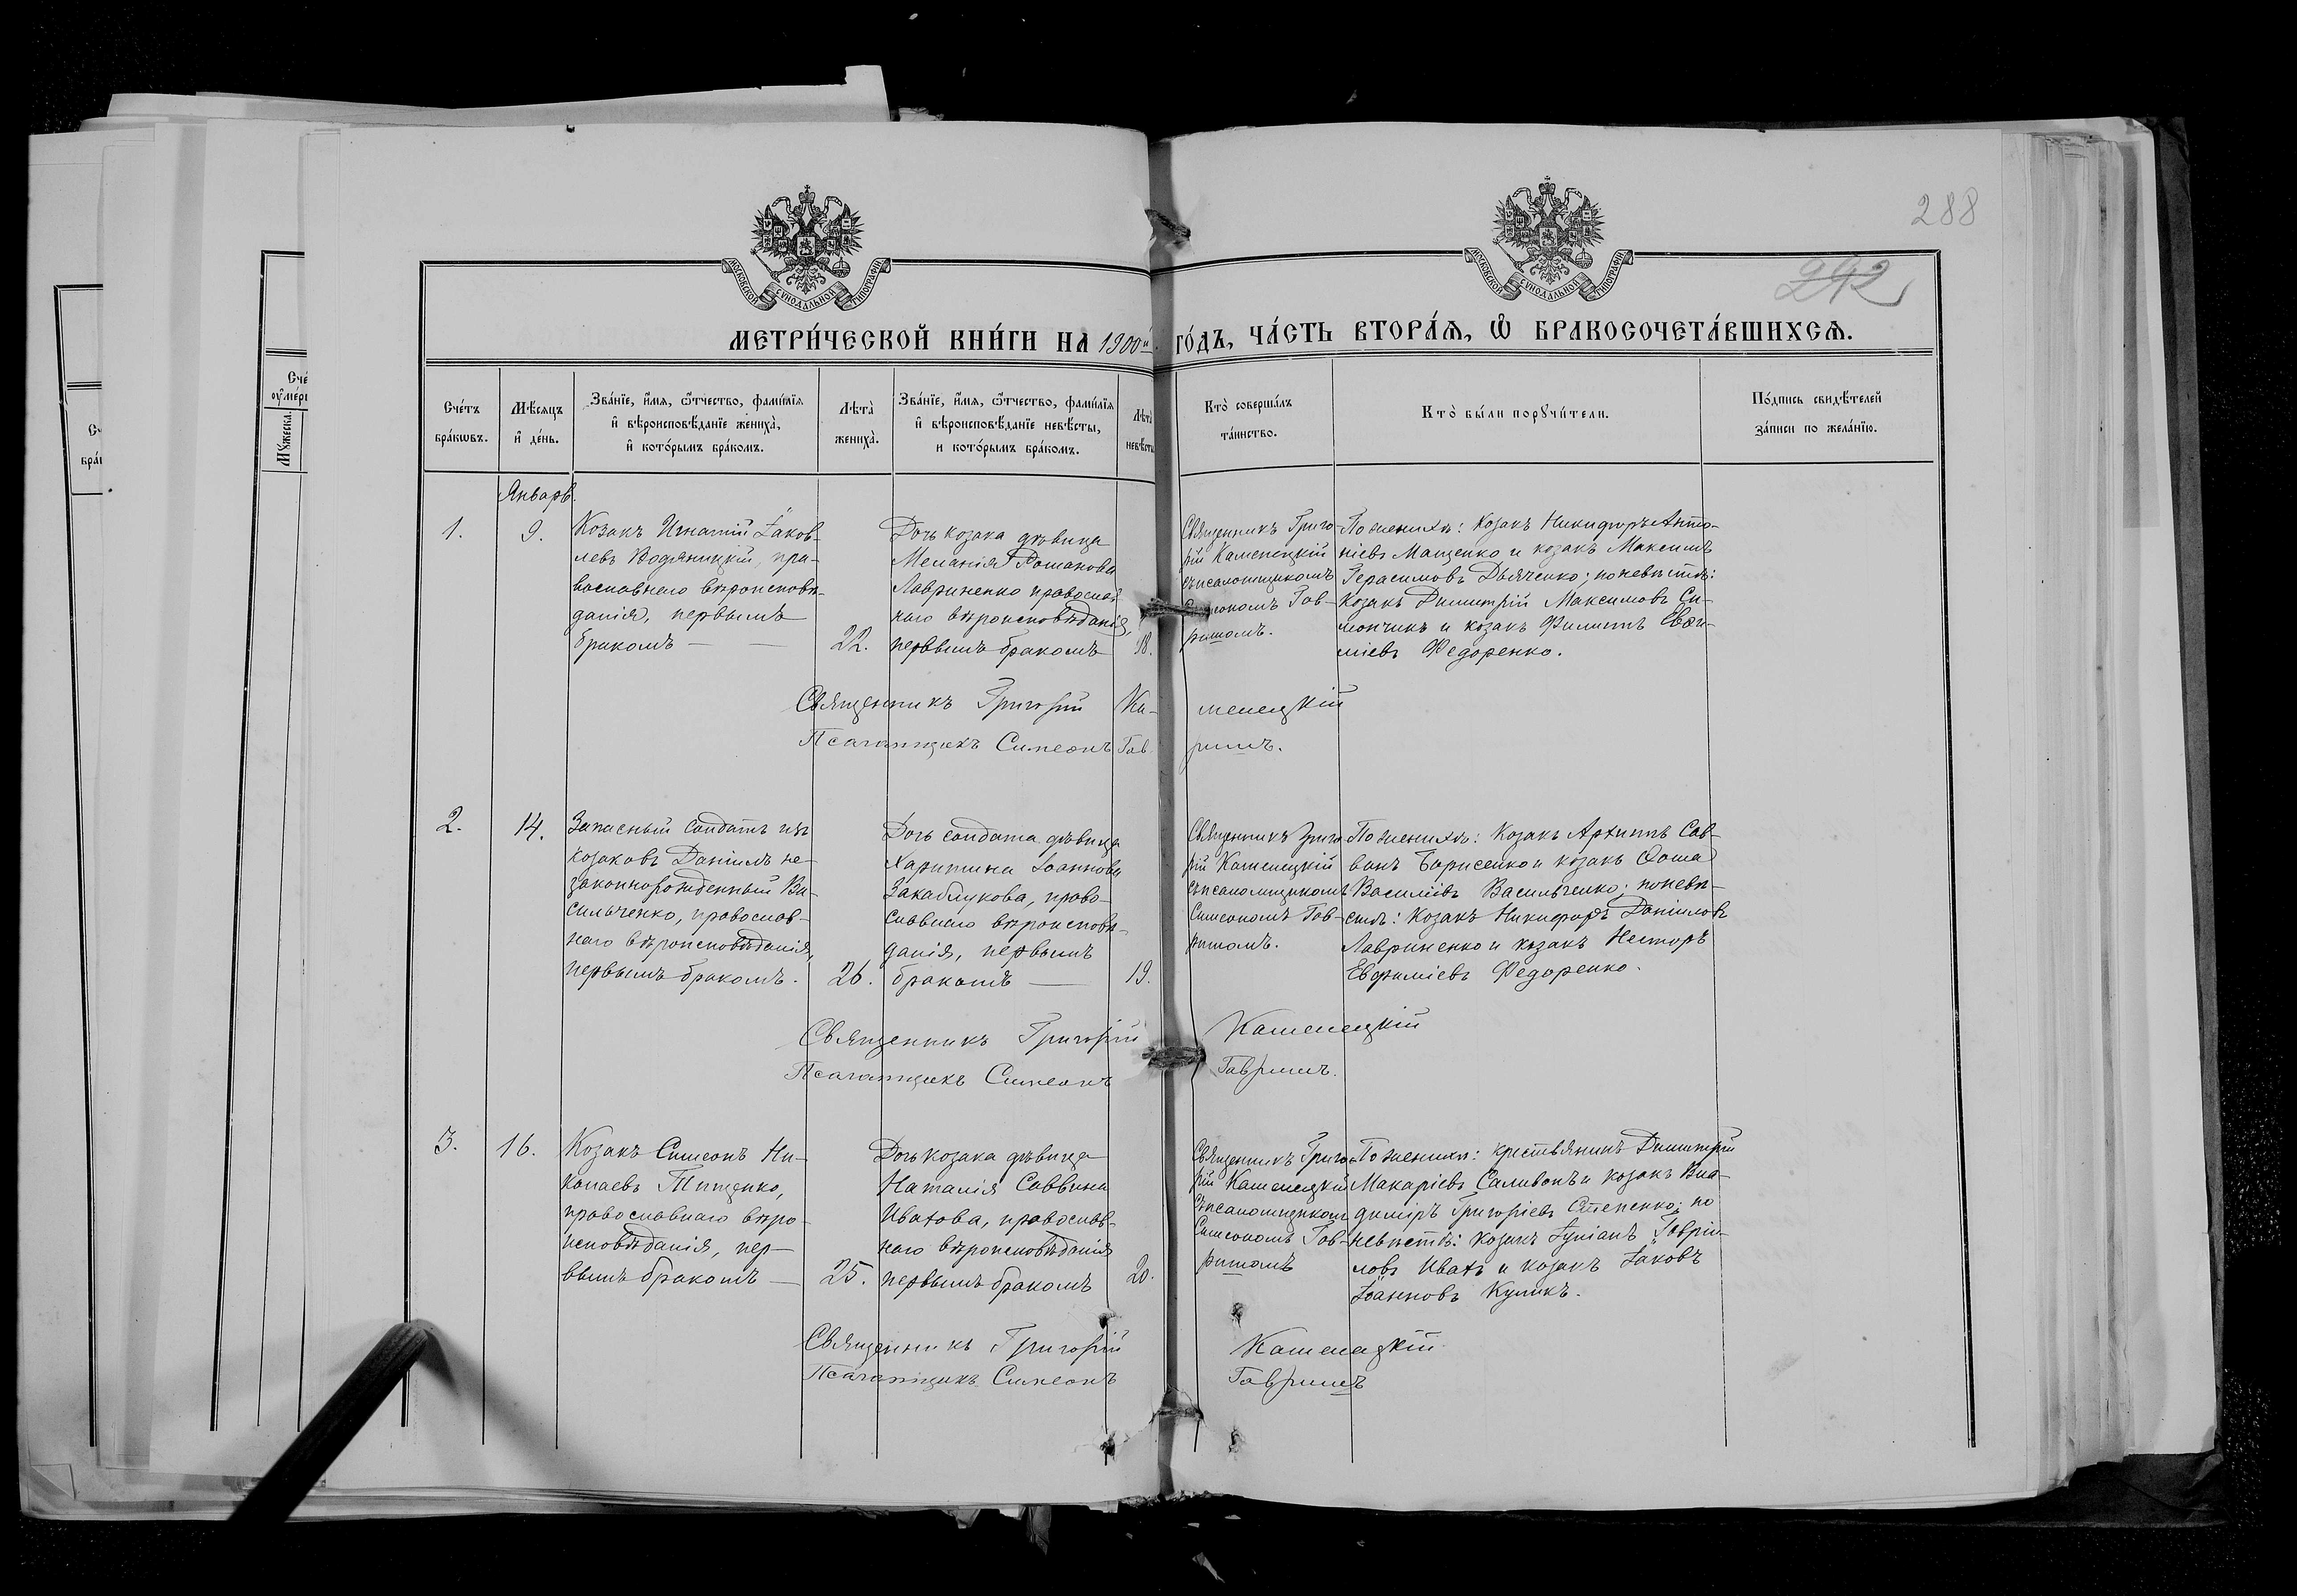 288
292
МОСКОВСКОЙ СѴНОДАЛЬНОЙ ТИПОГРАФІИ
МОСКОВСКОЙ СѴНОДАЛЬНОЙ ТИПОГРАФІИ
МЕТРИ́ЧЕСКОЙ КНИ́ГИ НА 1900й ГО́ДЪ, ЧА́СТЬ ВТОРА́Ѧ, Ѡ҆ БРАКОСОЧЕТА́ВШИХСѦ.
Сче́тъ
бра́кѡвъ.
Мѣ́сѧцъ
и҆ де́нь.
Зва́нїе, и҆́мѧ, ѻ҆́тчество, фами́лїѧ
и҆ вѣроисповѣ́данїе жениха̀,
и҆ кото́рымъ бра́комъ.
Лѣта̀
жениха̀.
Зва́нїе, и҆́мѧ, ѻ҆́тчество, фами́лїѧ
и҆ вѣроисповѣ́данїе невѣ́сты,
и кото́рымъ бра́комъ.
Лѣта̀
невѣ́сты
Кто̀ соверша́лъ
та́инство.
Кто̀ бы́ли порꙋчи́тели.
По́дпись свидѣ́телей
за́писи по жела́нїю.
Январь.
1.
9.
Козакъ Игнатій Іаков-
левъ Водяницкій, пра-
вославнаго вѣроисповѣ-
данія, первымъ
бракомъ —
22.
Дочь козака дѣвица
Меланія Романова
Лавриненко православ-
наго вѣроисповѣданія,
первымъ бракомъ
18.
Священникъ Григо-
рій Каменецкій
съ псаломщикомъ
Симеономъ Гав-
ришомъ.
По женихѣ: Козакъ Никифоръ Анто-
ніевъ Мащенко и козакъ Максимъ
Герасимовъ Дьяченко; по невѣстѣ:
Козакъ Димитрій Максимовъ Си-
мончикъ и козакъ Филиппъ Евѳи-
міевъ Федоренко.
Священникъ Григорій Каменецкій
Псаломщикъ Симеонъ Гавришъ.
2.
14.
Запасный солдатъ изъ
козаковъ Даніилъ не-
законнорожденный Ва-
сильченко, православ-
наго вѣроисповѣданія,
первымъ бракомъ.
26.
Дочь солдата дѣвица
Харитина Іоаннова
Закаблукова, право-
славнаго вѣроисповѣ-
данія, первымъ
бракомъ —
19.
Священникъ Григо-
рій Каменецкій
съ псаломщикомъ
Симеономъ Гав-
ришомъ.
По женихѣ: Козакъ Архиппъ Сав-
винъ Борисенко и козакъ Ѳома
Василіевъ Васильченко; по невѣ-
стѣ: Козакъ Никифоръ Даніиловъ
Лавриненко и козакъ Несторъ
Евфиміевъ Федоренко.
Священникъ Григорій Каменецкій
Псаломщикъ Симеонъ Гавришъ.
3.
16.
Козакъ Симеонъ Ни-
колаевъ Тищенко,
православнаго вѣро-
исповѣданія, пер-
вымъ бракомъ —
25.
Дочь козака дѣвица
Наталія Саввина
Ивахова, православ-
наго вѣроисповѣданія
первымъ бракомъ
20.
Священникъ Григо-
рій Каменецкій
съ псаломщикомъ
Симеономъ Гав-
ришомъ
По женихѣ: крестьянинъ Димитрій
Макаріевъ Саливонъ и козакъ Вла-
диміръ Григоріевъ Степенко; по
невѣстѣ: козакъ Іуліанъ Гавріи-
ловъ Ивахъ и козакъ Іаковъ
Іоанновъ Куликъ.
Священникъ Григорій Каменецкій
Псаломщикъ Симеонъ Гавришъ